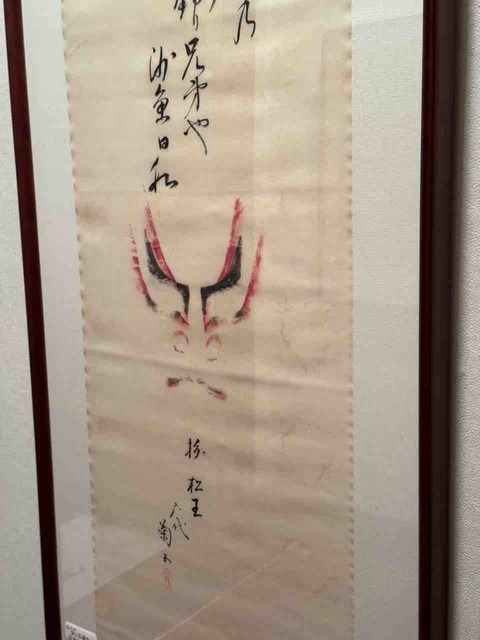 乃
兄弟也
沙魚日和
扮 松王
六代
菊五